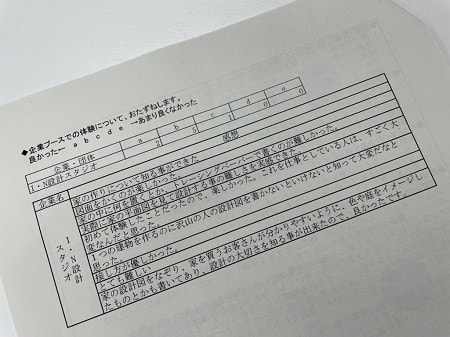 ◆企業ブースでの体験について、おたずねします。
良かった← a b c d e →あまり良くなかった
企業・団体 a b c d e
I・N設計スタジオ 2 5 1 0 0
企業名 感想
I・N設計スタジオ
家の作りについて知る事ができた
図面をかくのが楽しかった。
家の中に何を置くとか、トレーシングペーパーで書くのが難しかった。
実際に家の平面図を見て設計する事の難しさを実感できた。
初めて体験したことだったので、楽しかった。これを仕事としている人は、すごく大変なんだと思った。
1つの建物を作るのに沢山の人の設計図を書かないといけないと知って大変だなと思った
話し方が優しかった。
とても難しい
家の設計図をなぞり、家を買うお客さんが分かりやすいように、色や庭をイメージし
たものとかも書いてあり、設計の大切さを知る事が出来たので、良かったです。